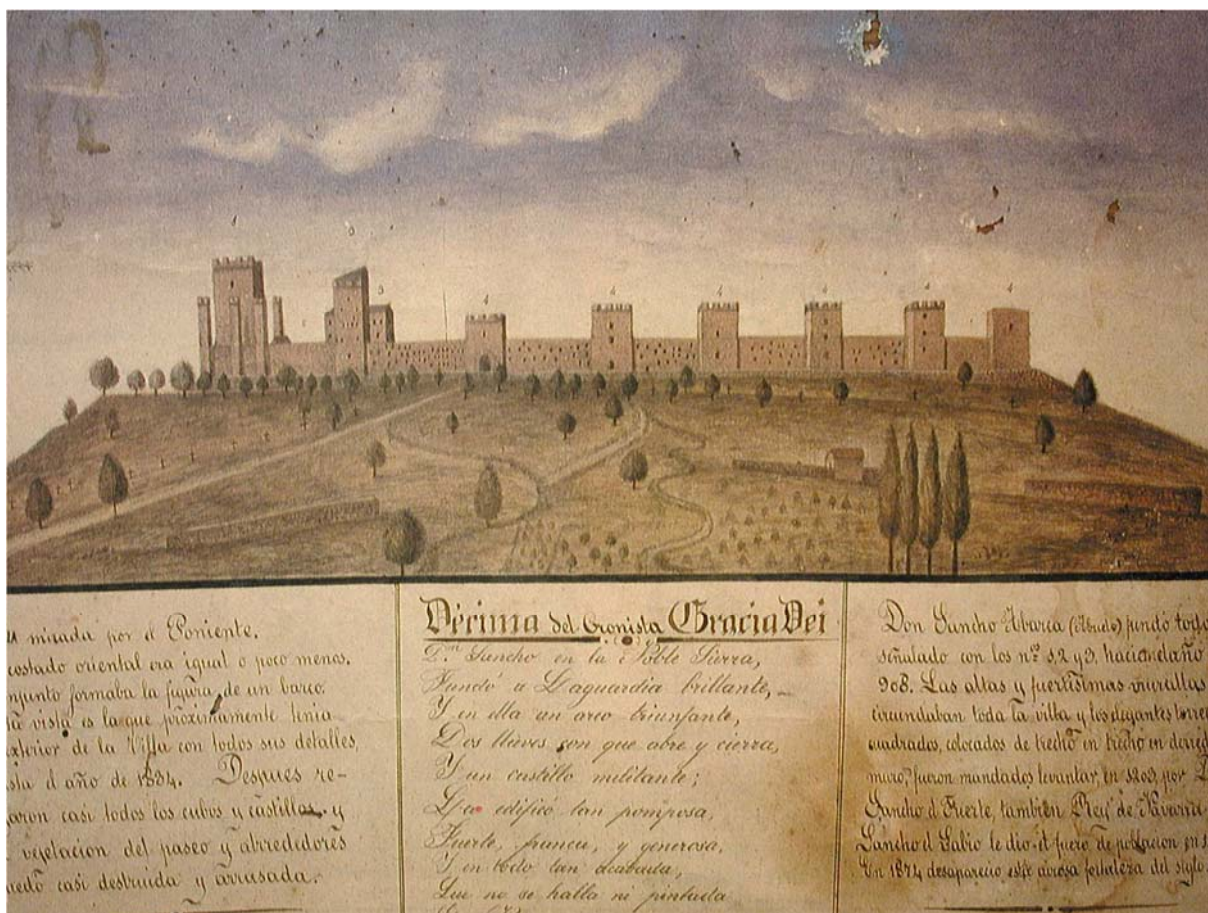 mirada por el Poniente.
costado oriental era igual o poco menos.
njunto formaba la figura de un barco.
vista es la que próximamente tenia
exterior de la Villa con todos sus detalles,
sta el año de 1834. Despues re-
aron casi todos los cubos y castillos y
vejetacion del paseo y alrrededores
uedó casi destruida y arrasada.
Décima del Cronista Gracia Dei
D.ⁿ Sancho en la Noble Sierra,
Fundó a Laguardia brillante,
Y en ella un arco triunfante,
Dos llaves con que abre y cierra,
Y un castillo militante;
La edificó tan pomposa,
Fuerte, franca, y generosa,
Y en todo tan acabada,
Que no se halla ni pintada
Don Sancho Abarca fundó todo
señalado con los nº 1, 2 y 3, hacia el año
908. Las altas y fuertísimas murallas
circundaban toda la villa y los elegantes torre
cuadrados, colocados de trecho en trecho en derred
muro, fueron mandados levantar, en 1203, por D
Sancho el Fuerte, también Rey de Navarra.
Sancho el Sabio le dio el fuero de poblacion en 1
En 1874 desaparecio esta airosa fortaleza del siglo
3
4
4
4
4
4
4